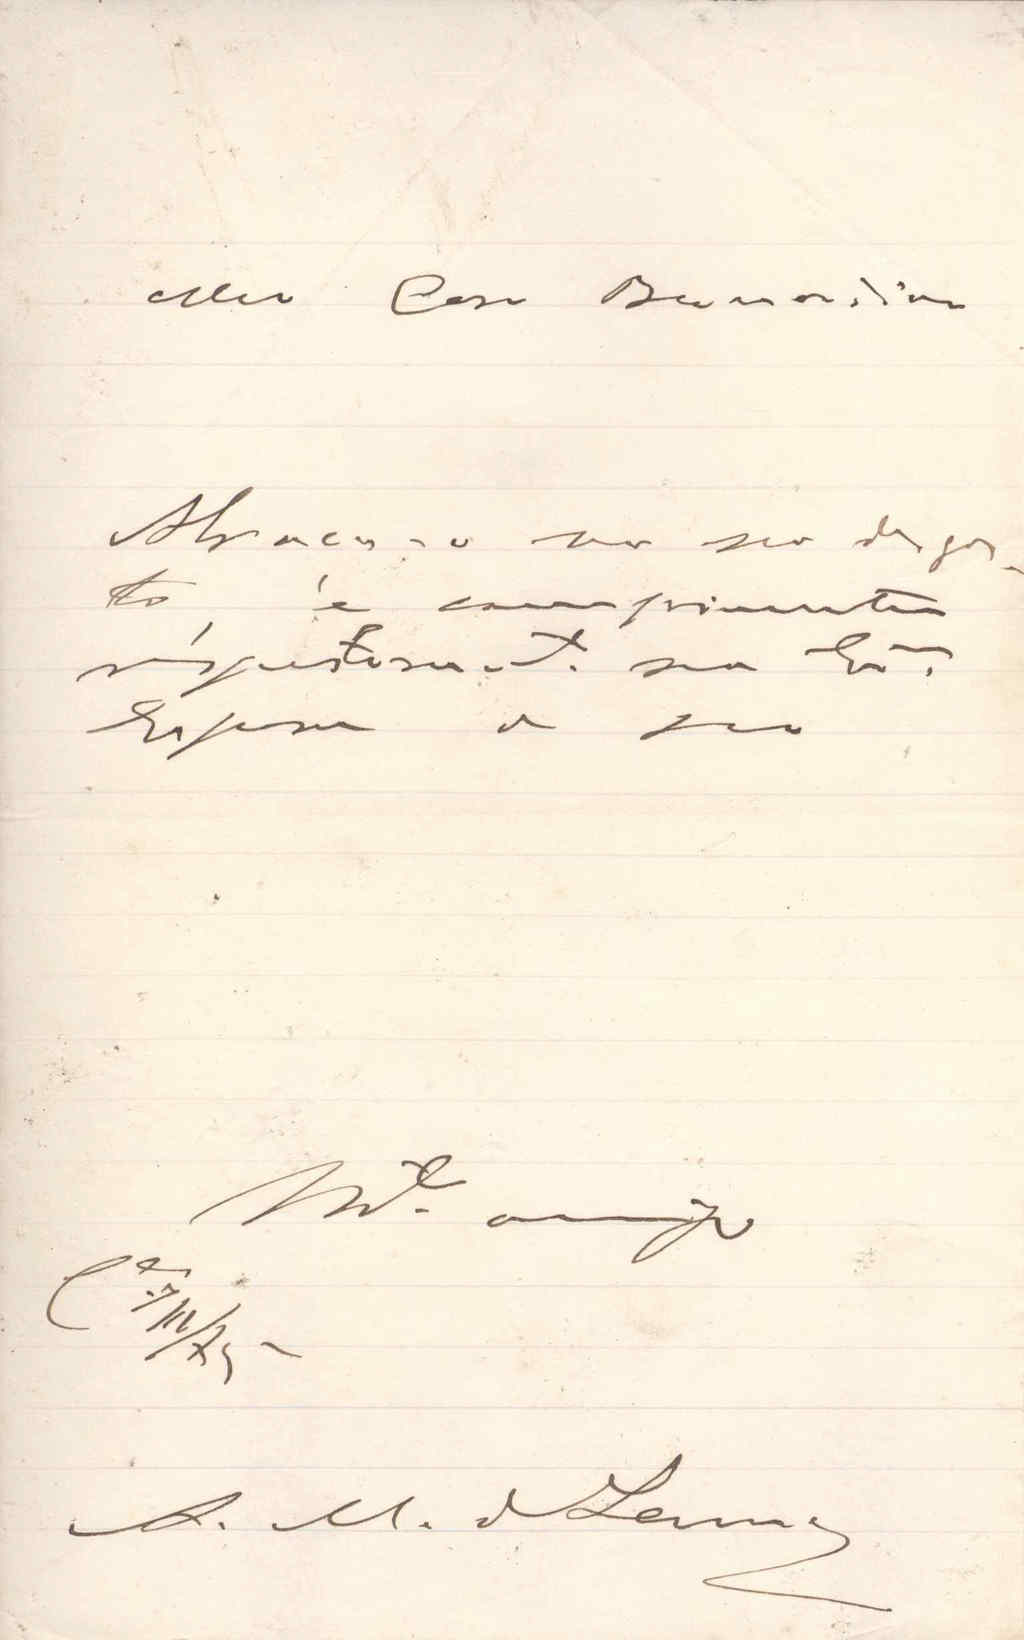 Meu Caro Bernardino
Abraço-o no seu desgos-
to e comprimenta
respeitosamte. sua Exma.
Esposa o seu
Mto. amigo
A. M. de Lemos